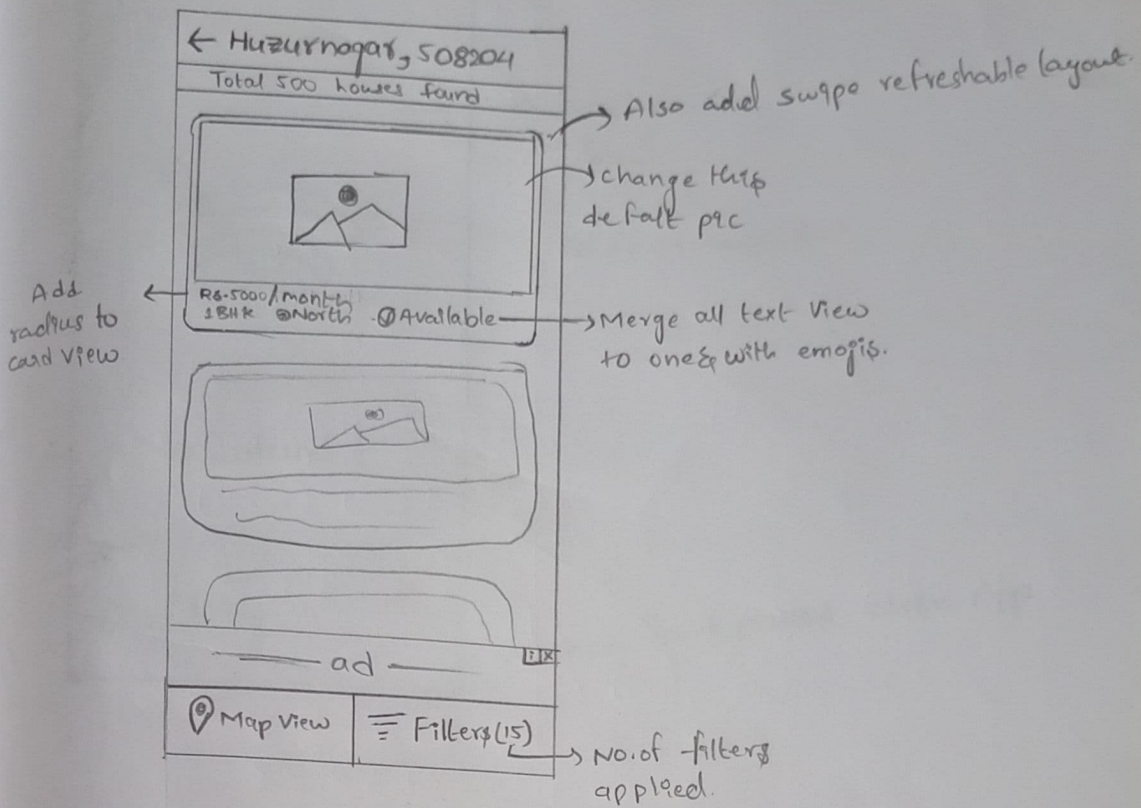 ← Huzurnagar, 508204
Total 500 houses found
Also add swipe refreshable layout.
change this
defalt pic
Add
radius to
card view
Rs.5000/month
1BHK North Available
Merge all text view
to one & with emojis.
ad
i X
Map View
Filters(15)
No.of filters
applied.